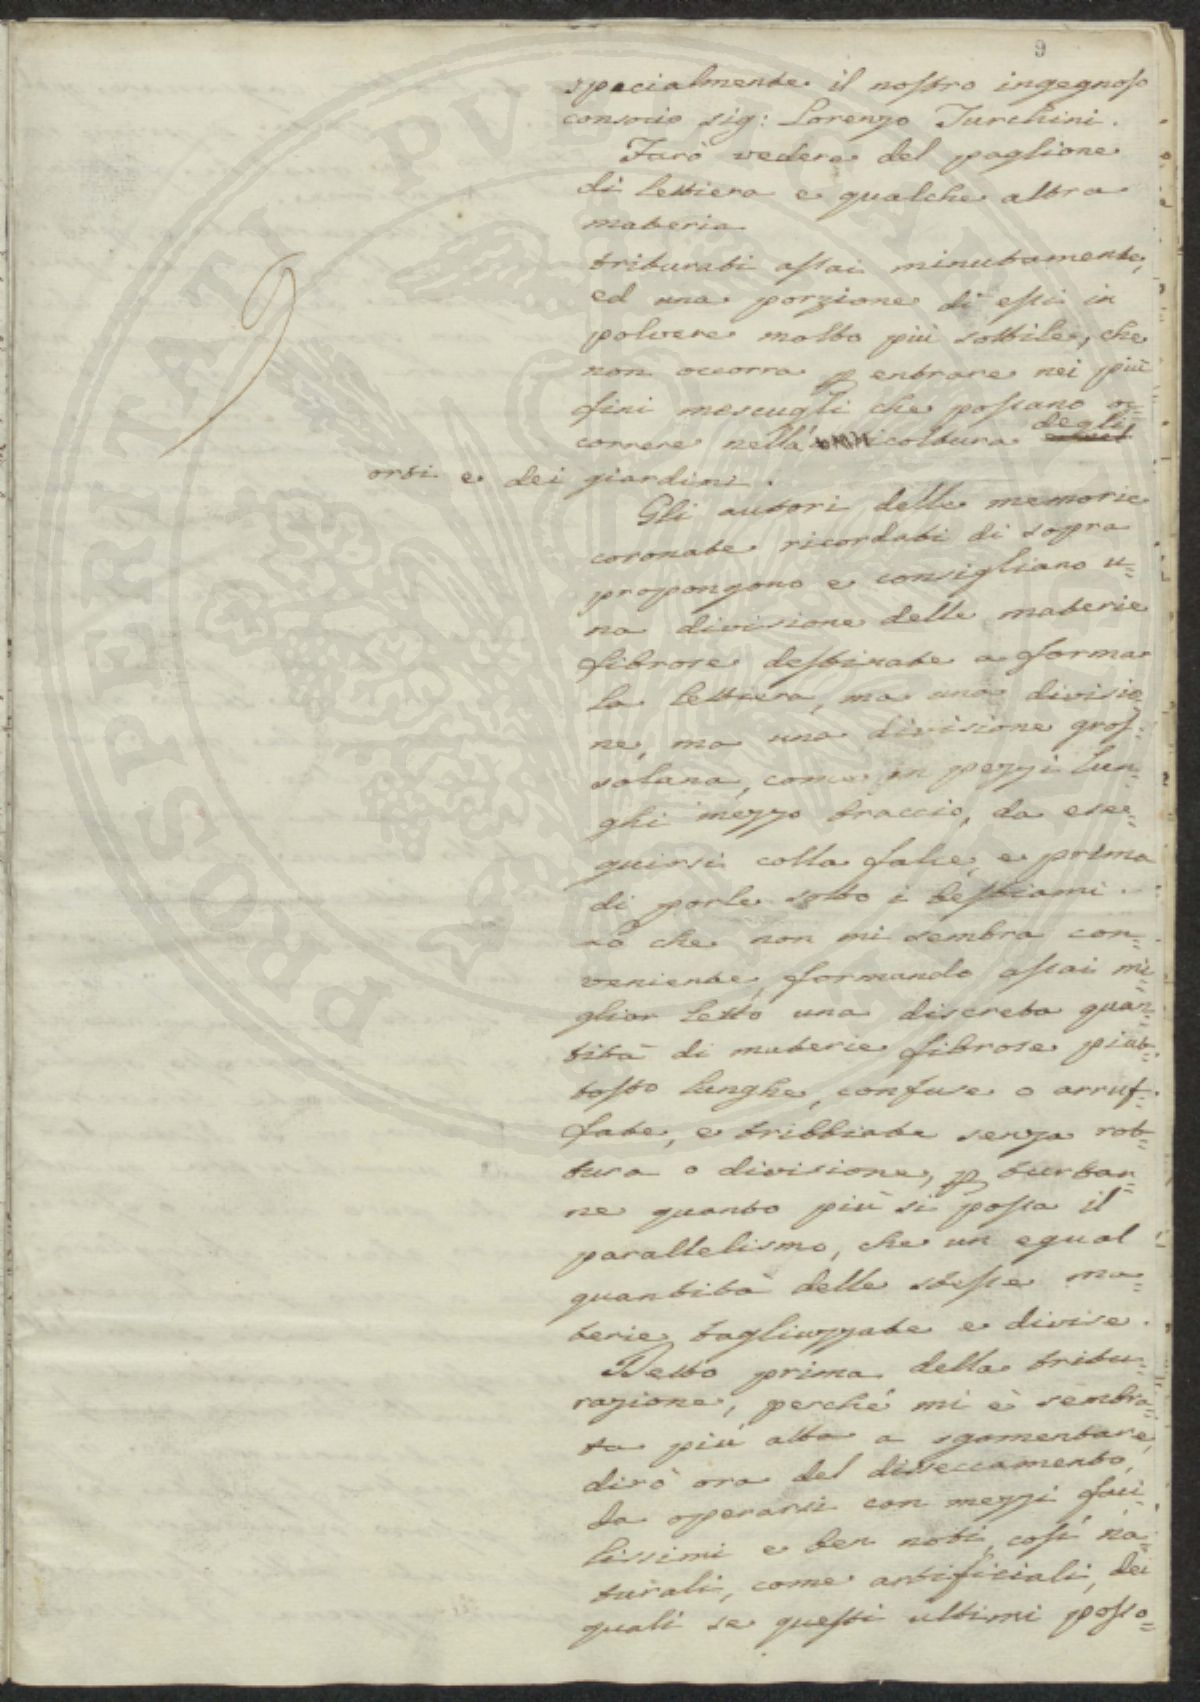 9
specialmente il nostro ingegnoso
consocio sig: Lorenzo Turchini.
Farò vedere del paglione
di lettiera e qualche altra
materia
triturati assai minutamente,
ed una porzione di essi in
polvere molto più sottile, che
non occorra p entrare nei più
fini mescugli che possano oc=
correre nella icoltura degli
orti e dei giardini.
Gli autori delle memorie
coronate ricordati di sopra
propongono e consigliano u=
na divisione delle materie
fibrose destinate a forma
la lettiera, ma una divisio
ne, ma una divisione gros=
solana, come in pezzi lun=
ghi mezzo braccio, da ese=
guirsi colla falce, e prima
di porle sotto i bestiami.
Ciò che non mi sembra con=
veniente, formando assai mi=
glior letto una discreta quan=
tità di materie fibrose piut=
tosto lunghe, confuse o arruf=
fate, e tribbiate senza rot=
tura o divisione, p turbar=
ne quanto più si possa il
parallelismo, che un egual
quantità delle stesse ma=
terie tagliuzzate e divise.
Detto prima della tritu=
razione, perché mi è sembra=
ta più atta a sgomentare,
dirò ora del disseccamento,
da operarsi con mezzi faci=
lissimi e ben noti, così na=
turali, come artificiali, dei
quali se questi ultimi posso=
PROSPERITATI PVBLICAE